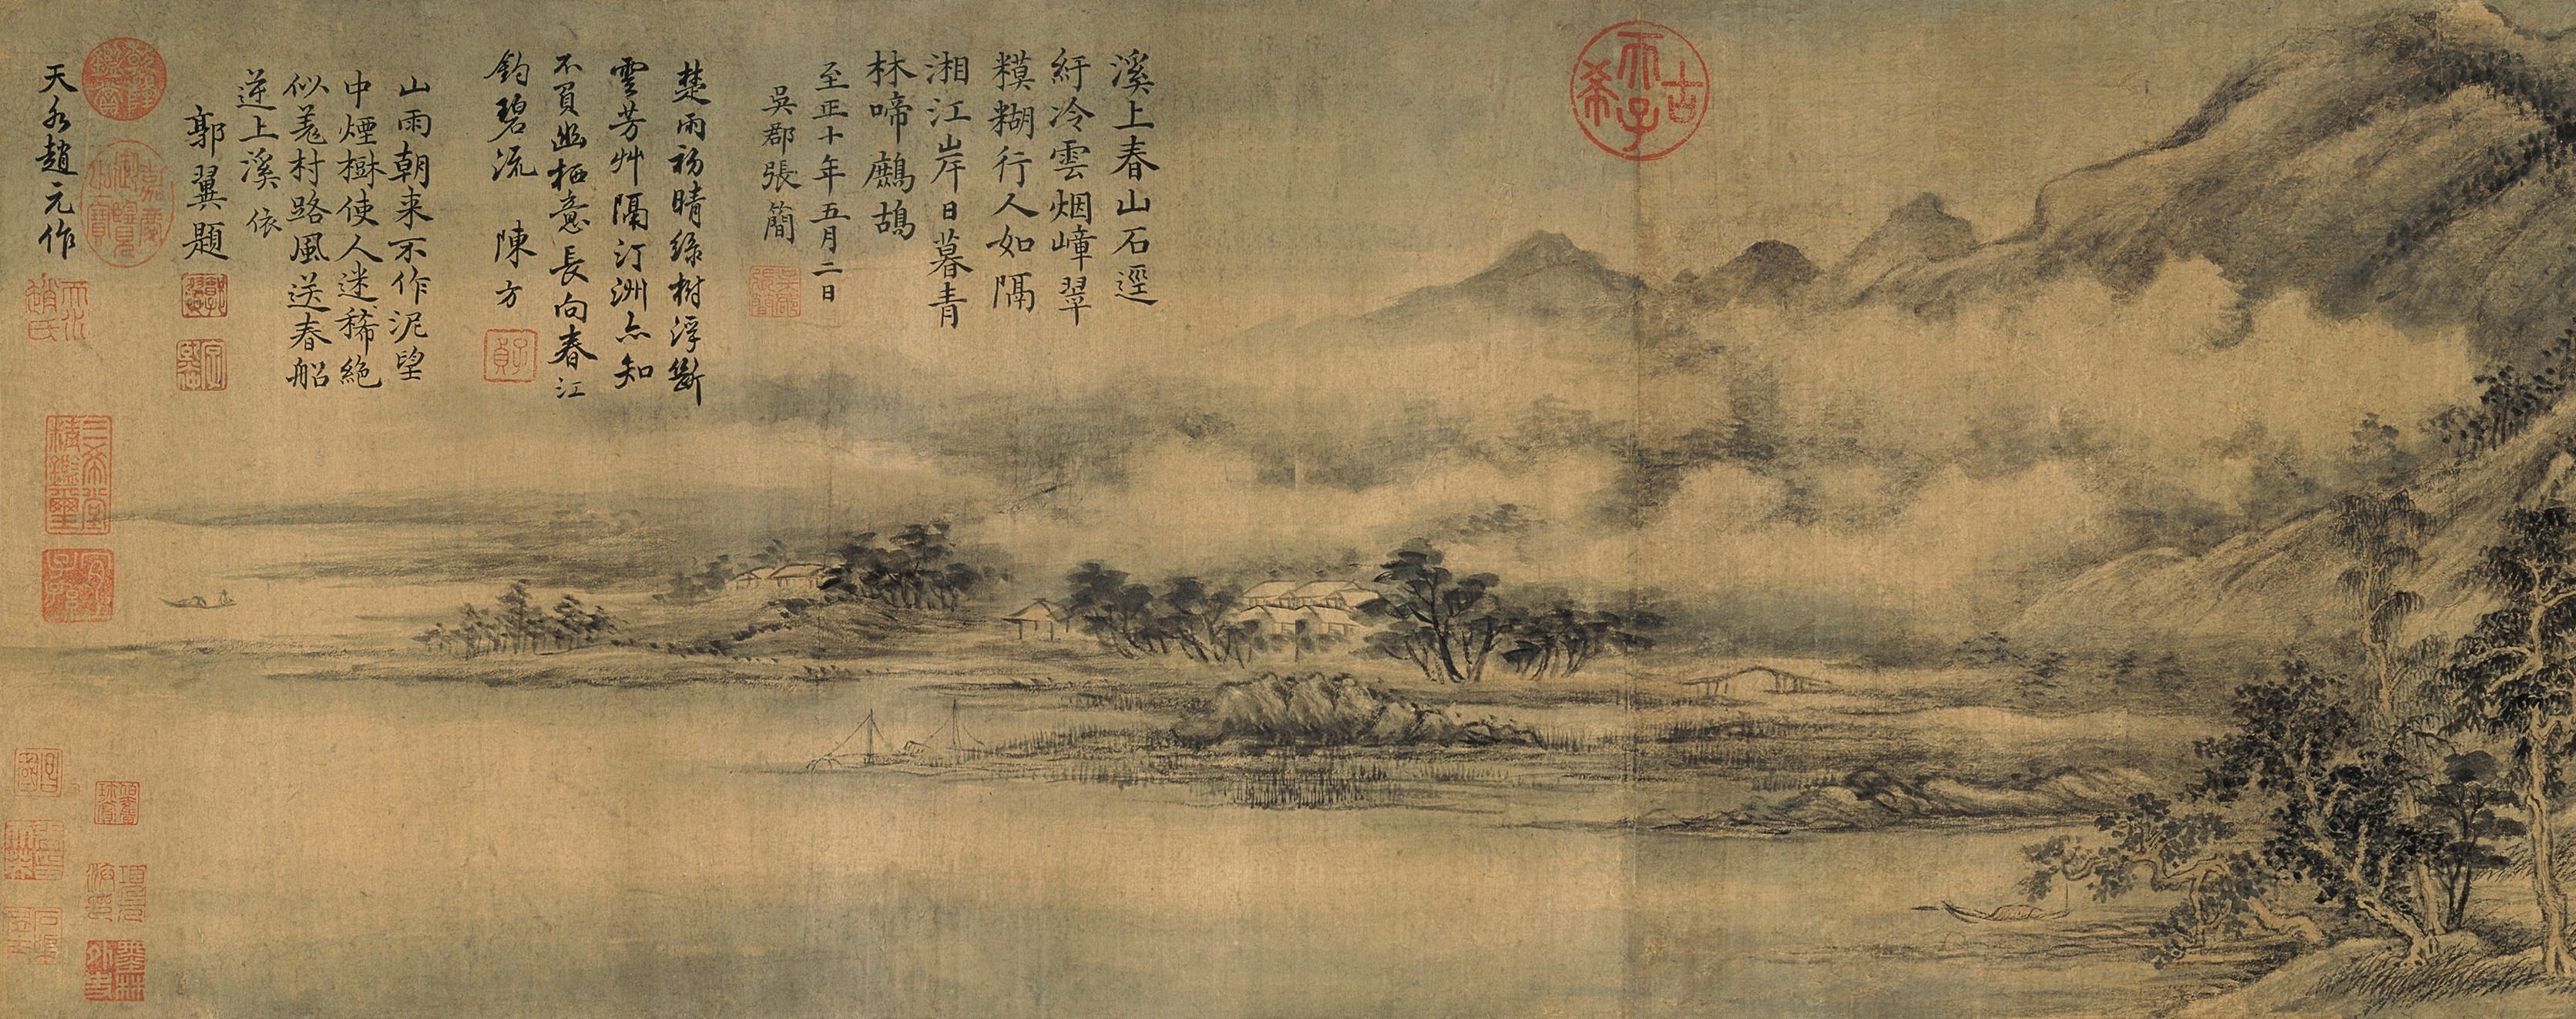 古希天子
溪上春山石逕
紆冷雲烟嶂翠
糢糊行人如隔
湘江岸日暮青
林啼鷓鴣
至正十年五月二日
吳郡張簡
楚雨初晴綠樹浮斷
雲芳艸隔汀洲亦知
不負幽栖意長向春江
釣碧流 陳方
山雨朝来不作泥望
中煙樹使人迷稀絶
似羌村路風送春船
逆上溪 依
郭翼題
乾隆鑑賞
嘉慶御覽之寶
天水趙元作
三希堂精鑑璽
宜子孫